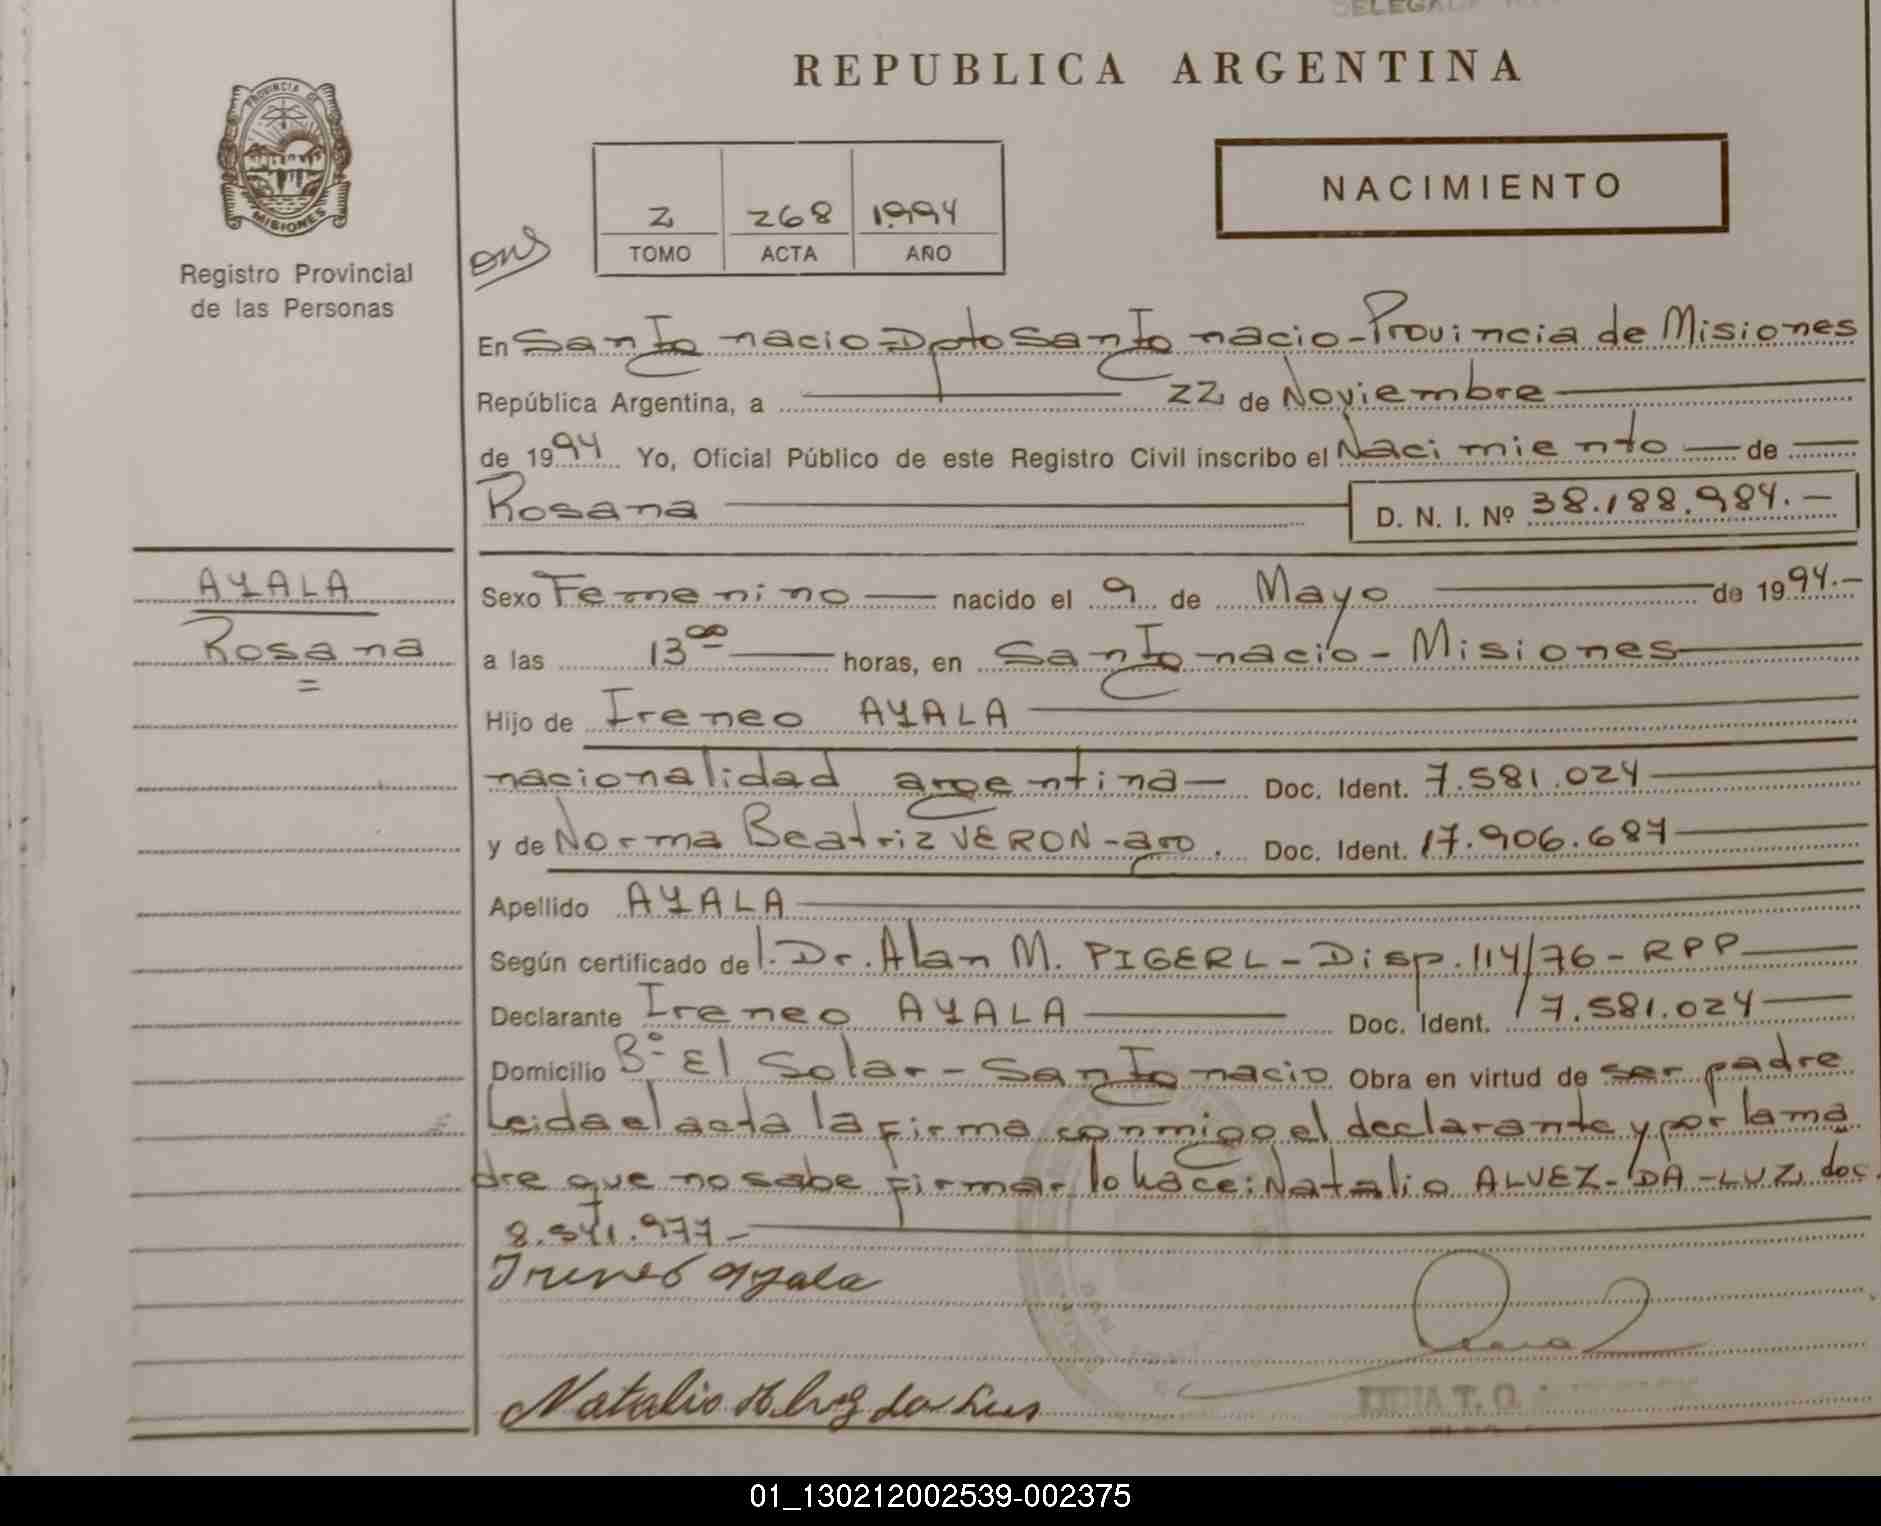 REPUBLICA ARGENTINA
PROVINCIA DE
MISIONES
Registro Provincial
de las Personas
NACIMIENTO
2 268 1994
TOMO ACTA AÑO
En San Ignacio - Dpto San Ignacio - Provincia de Misiones
República Argentina, a 22 de Noviembre
de 1994 Yo, Oficial Público de este Registro Civil inscribo el Nacimiento de
Rosana D. N. I. Nº 38.188.984.-
AYALA
Rosana
Sexo Femenino nacido el 9 de Mayo de 1994.-
a las 13 00 horas, en San Ignacio - Misiones
Hijo de Ireneo AYALA
nacionalidad argentina - Doc. Ident. 7.581.024
y de Norma Beatriz VERON - arg. Doc. Ident. 17.906.687
Apellido AYALA
Según certificado del. Dr. Alan M. PIGERL - Disp. 114/76 - RPP
Declarante Ireneo AYALA Doc. Ident. 7.581.024
Domicilio Bº El Solar - San Ignacio Obra en virtud de ser padre
Leida el acta la firma conmigo el declarante y por la ma
dre que no sabe firmar lo hace: Natalio ALVEZ - DA - LUZ, doc.
8.541.977 -
Ireneo Ayala
Natalio Alvez da Lus
LIDIA T. O.
01_130212002539-002375